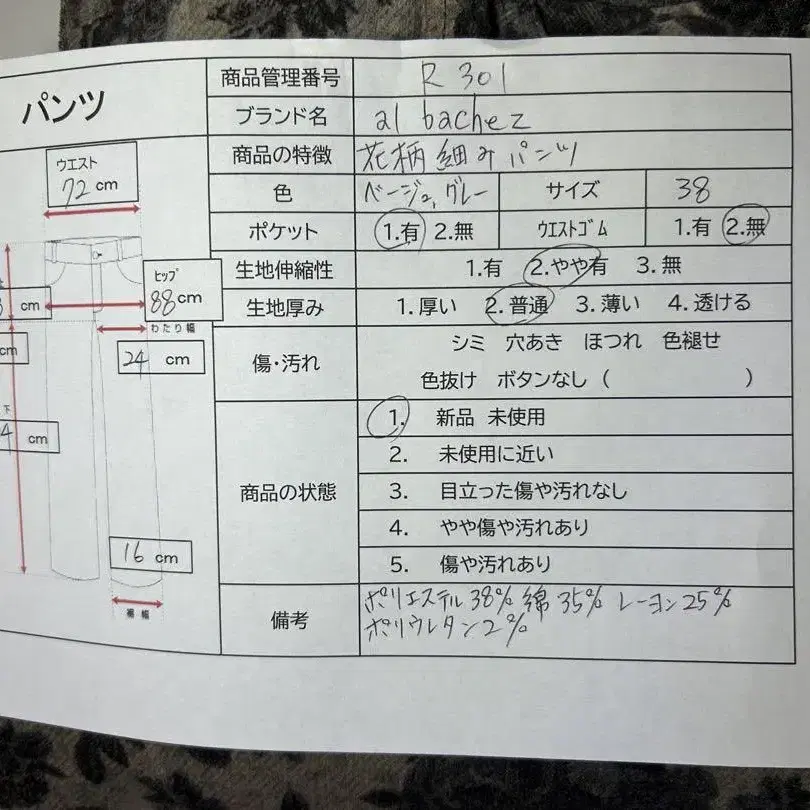 パンツ
商品管理番号 R 301
ブランド名 al bachez
商品の特徴 花柄細みパンツ
色 ベージュ,グレー サイズ 38
ポケット 1.有 2.無 ウエストゴム 1.有 2.無
生地伸縮性 1.有 2.やや有 3.無
生地厚み 1.厚い 2.普通 3.薄い 4.透ける
傷・汚れ シミ 穴あき ほつれ 色褪せ
色抜け ボタンなし ( )
商品の状態
1. 新品 未使用
2. 未使用に近い
3. 目立った傷や汚れなし
4. やや傷や汚れあり
5. 傷や汚れあり
備考 ポリエステル38% 綿35% レーヨン25%
ポリウレタン2%
ウエスト
72 cm
ヒップ
88 cm
cm
わたり幅
24 cm
cm
下
4 cm
16 cm
裾幅